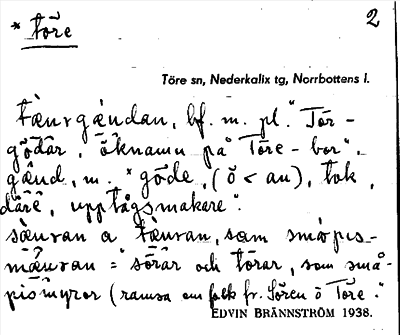 * töre
2
Töre sn, Nederkalix tg, Norrbottens l.
tæ̀nrgændan, bf. m. pl. "Tör-
gödar, öknamn på Töre-bor".
gænd, m. * göde, (ö < au), tok,
dåre, upptågsmakare".
sænran a tænran, sɑm småpɪs-
mænran = "sörar och törar, som små-
pismyror (ramsa om folk fr. Sören o Töre."
EDVIN BRÄNNSTRÖM 1938.